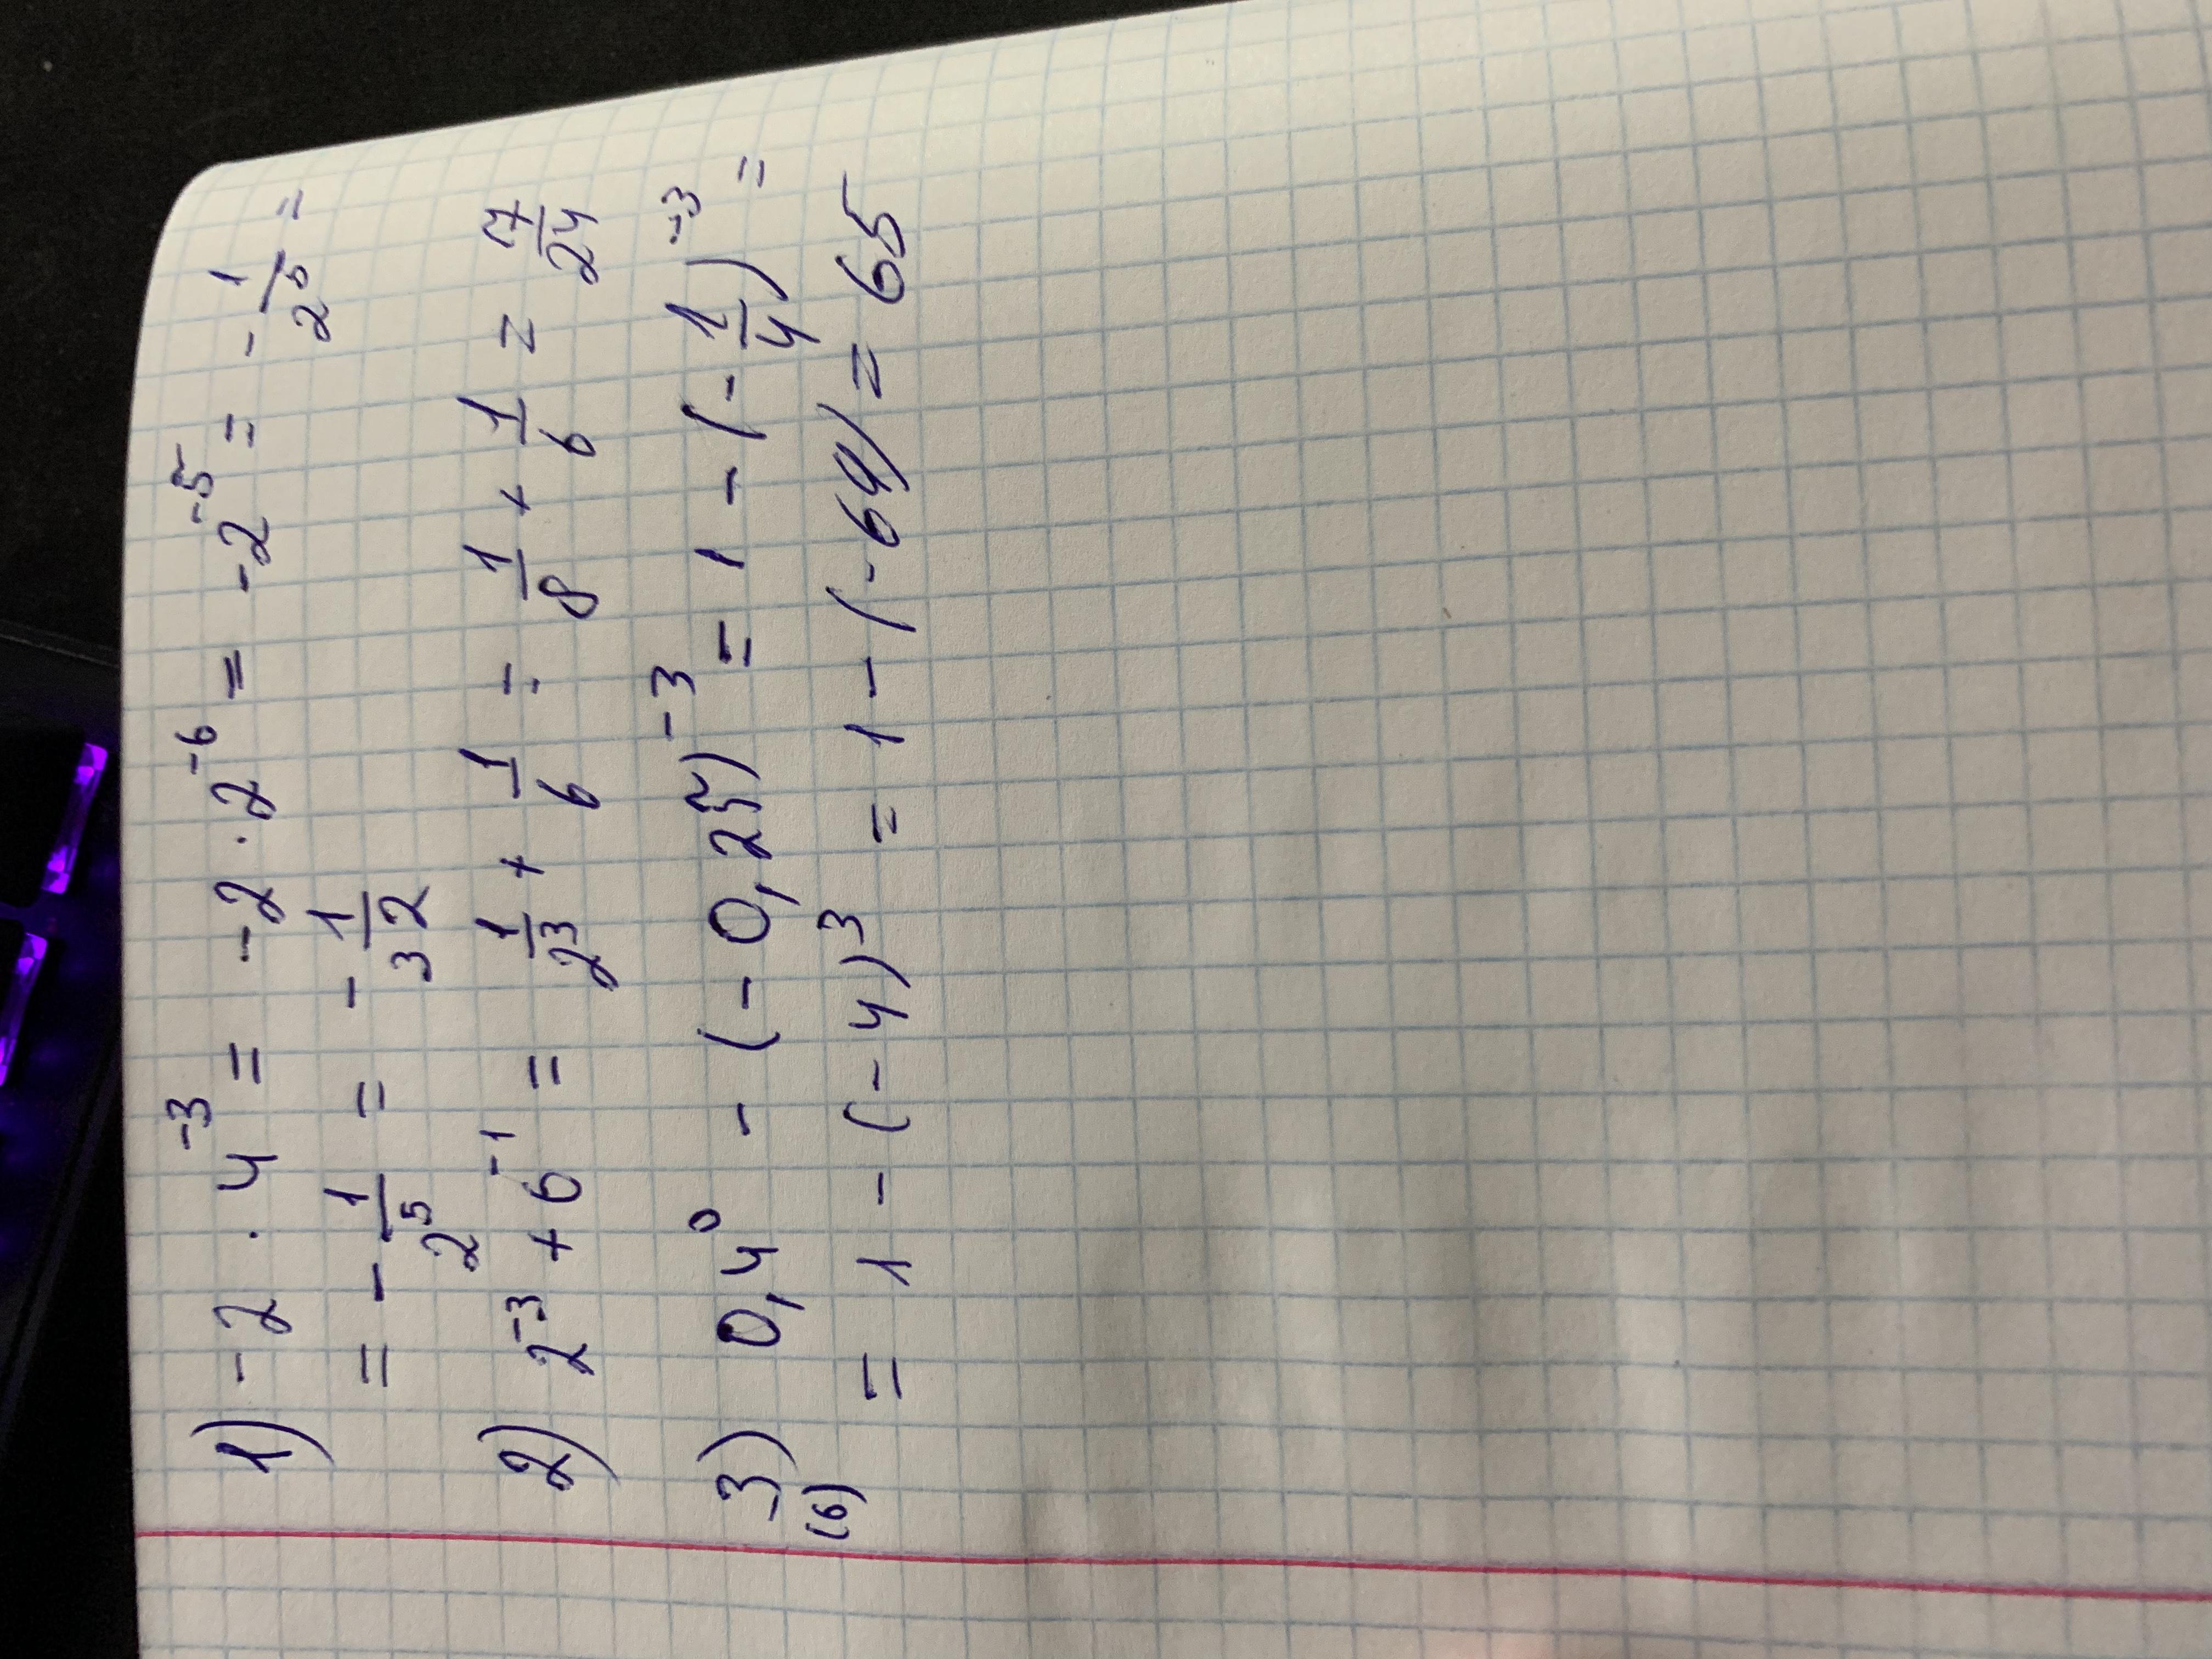 1) -2 · 4⁻³ = -2 · 2⁻⁶ = -2⁻⁵ = -1/2⁵ =
= -1/2⁵ = -1/32
2) 2⁻³ + 6⁻¹ = 1/2³ + 1/6 = 1/8 + 1/6 = 7/24
3) 0,4⁰ - (-0,25)⁻³ = 1 - (-1/4)⁻³ =
(6) = 1 - (-4)³ = 1 - (-64) = 65